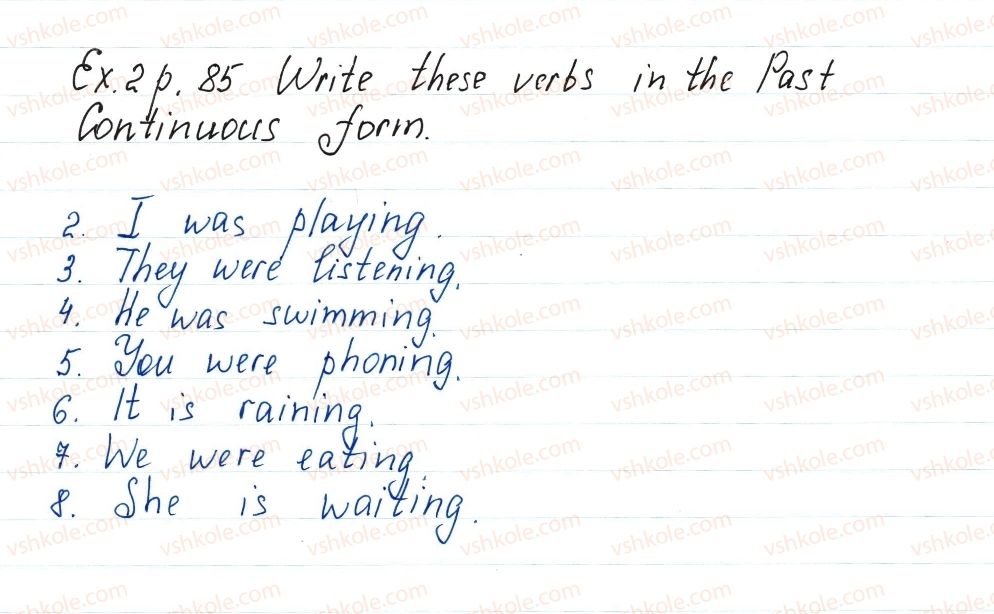 Ex. 2 p. 85 Write these verbs in the Past
Continuous form.
2. I was playing.
3. They were listening.
4. He was swimming.
5. You were phoning.
6. It is raining.
7. We were eating.
8. She is waiting.
vshkole.com